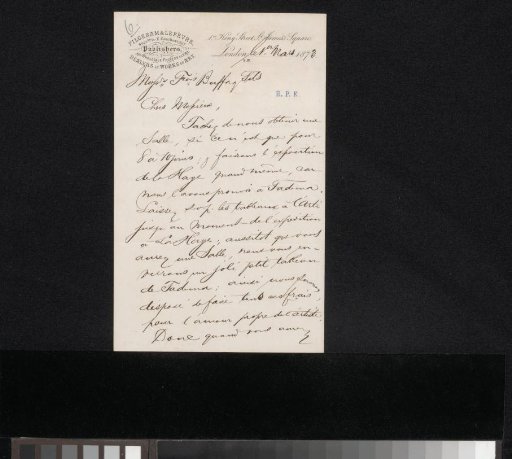 PILGERAM & LEFEVRE,
Publishers,
DEALERS IN WORKS OF ART.
1a King Street St James's Square.
London, le 1er Mars 1873
Messrs Frans Buffa & fils
Chers Messieurs,
Tachez de nous obtenir une
Salle, si ce n'est que pour
8 à 10 jours, & faisons l'exposition
de La Haye quand même, car
nous l'avons promis à Tadema.
Laissez s.v.p. les tableaux à l'Arti
jusqu'au moment de l'exposition
à La Haye; aussitot que vous
aurez une Salle, nous vous en-
verrons un joli petit tableau
de Tadema; ainsi, nous sommes
disposé de faire tous ces frais,
pour l'amour propre de l'artiste
Donc quand vous aurez
B. P. R